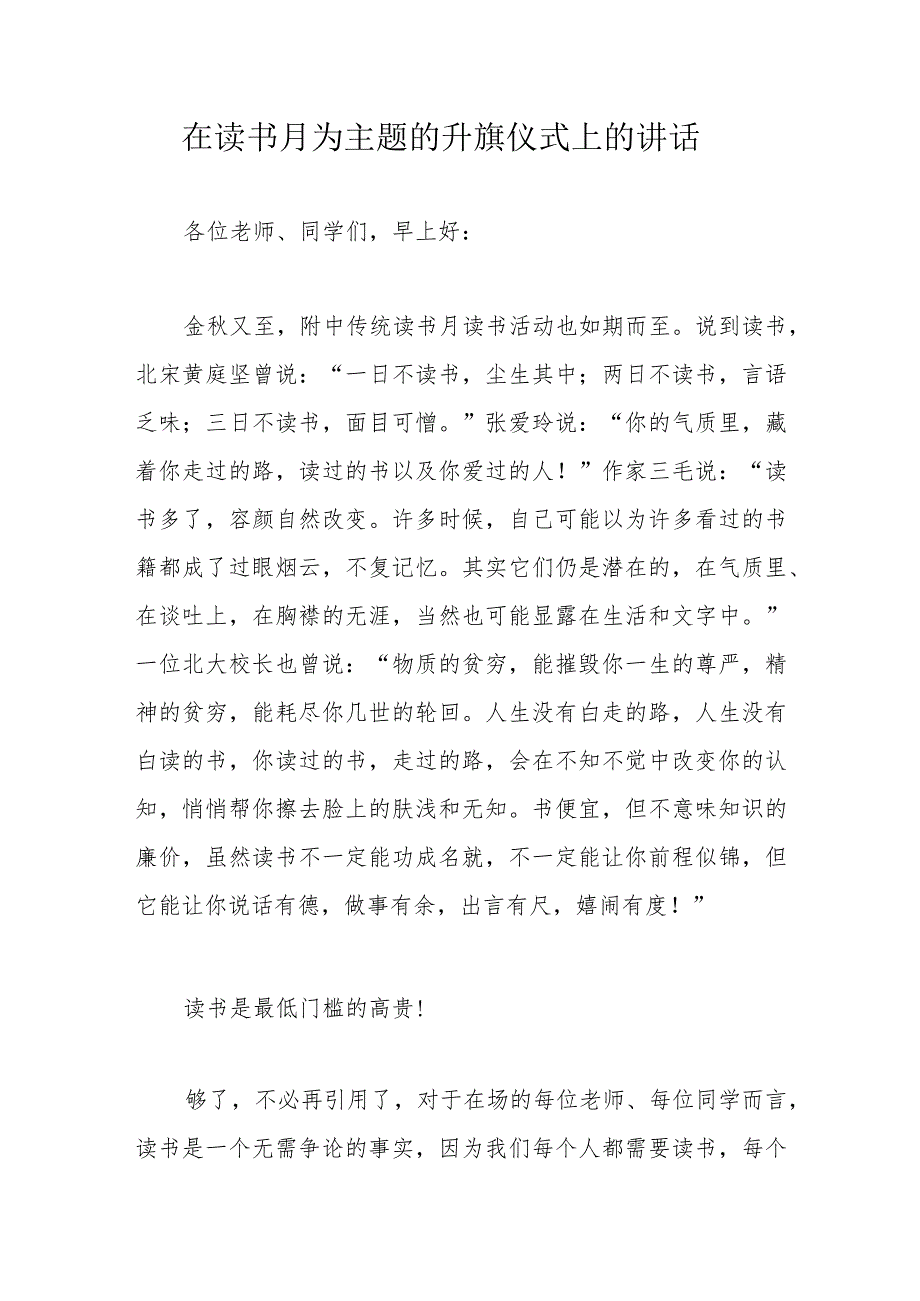 在读书月为主题的升旗仪式上的讲话
各位老师、同学们，早上好：
金秋又至，附中传统读书月读书活动也如期而至。说到读书，
北宋黄庭坚曾说：“一日不读书，尘生其中；两日不读书，言语
乏味；三日不读书，面目可憎。”张爱玲说：“你的气质里，藏
着你走过的路，读过的书以及你爱过的人！”作家三毛说：“读
书多了，容颜自然改变。许多时候，自己可能以为许多看过的书
籍都成了过眼烟云，不复记忆。其实它们仍是潜在的，在气质里、
在谈吐上，在胸襟的无涯，当然也可能显露在生活和文字中。”
一位北大校长也曾说：“物质的贫穷，能摧毁你一生的尊严，精
神的贫穷，能耗尽你几世的轮回。人生没有白走的路，人生没有
白读的书，你读过的书，走过的路，会在不知不觉中改变你的认
知，悄悄帮你擦去脸上的肤浅和无知。书便宜，但不意味知识的
廉价，虽然读书不一定能功成名就，不一定能让你前程似锦，但
它能让你说话有德，做事有余，出言有尺，嬉闹有度！”
读书是最低门槛的高贵！
够了，不必再引用了，对于在场的每位老师、每位同学而言，
读书是一个无需争论的事实，因为我们每个人都需要读书，每个